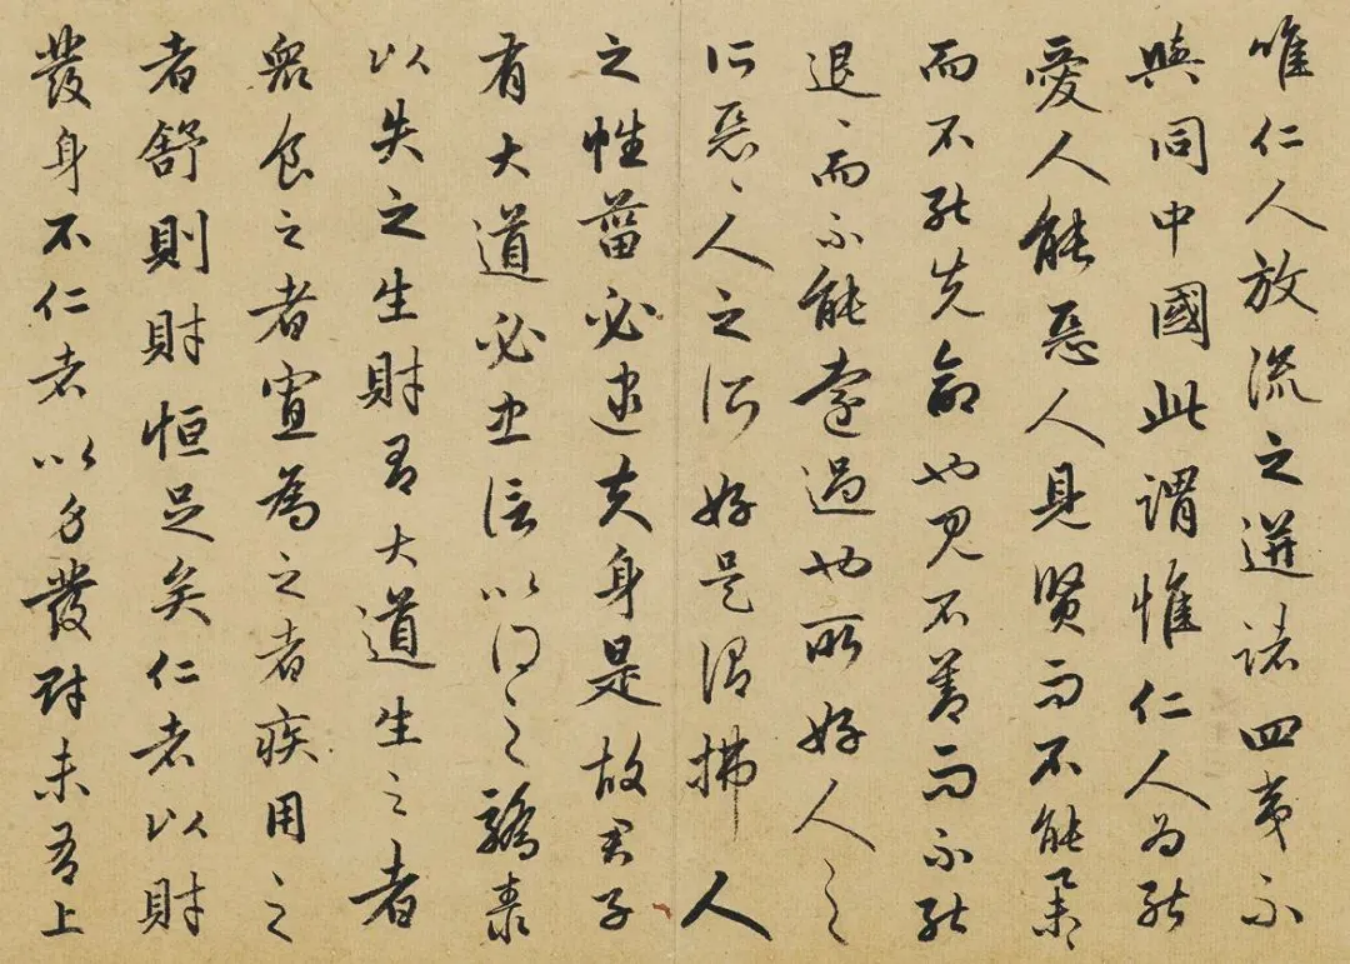 唯仁人放流之迸諸四夷不
與同中國此謂惟仁人為能
愛人能惡人見賢而不能舉
而不能先命也見不善而不能
退〻而不能遠過也所好人之
所惡〻人之所好是謂拂人
之性菑必逮夫身是故君子
有大道必忠信以得之驕泰
以失之生財有大道生之者
眾食之者寡為之者疾用之
者舒則財恒足矣仁者以財
發身不仁者以身發財未有上